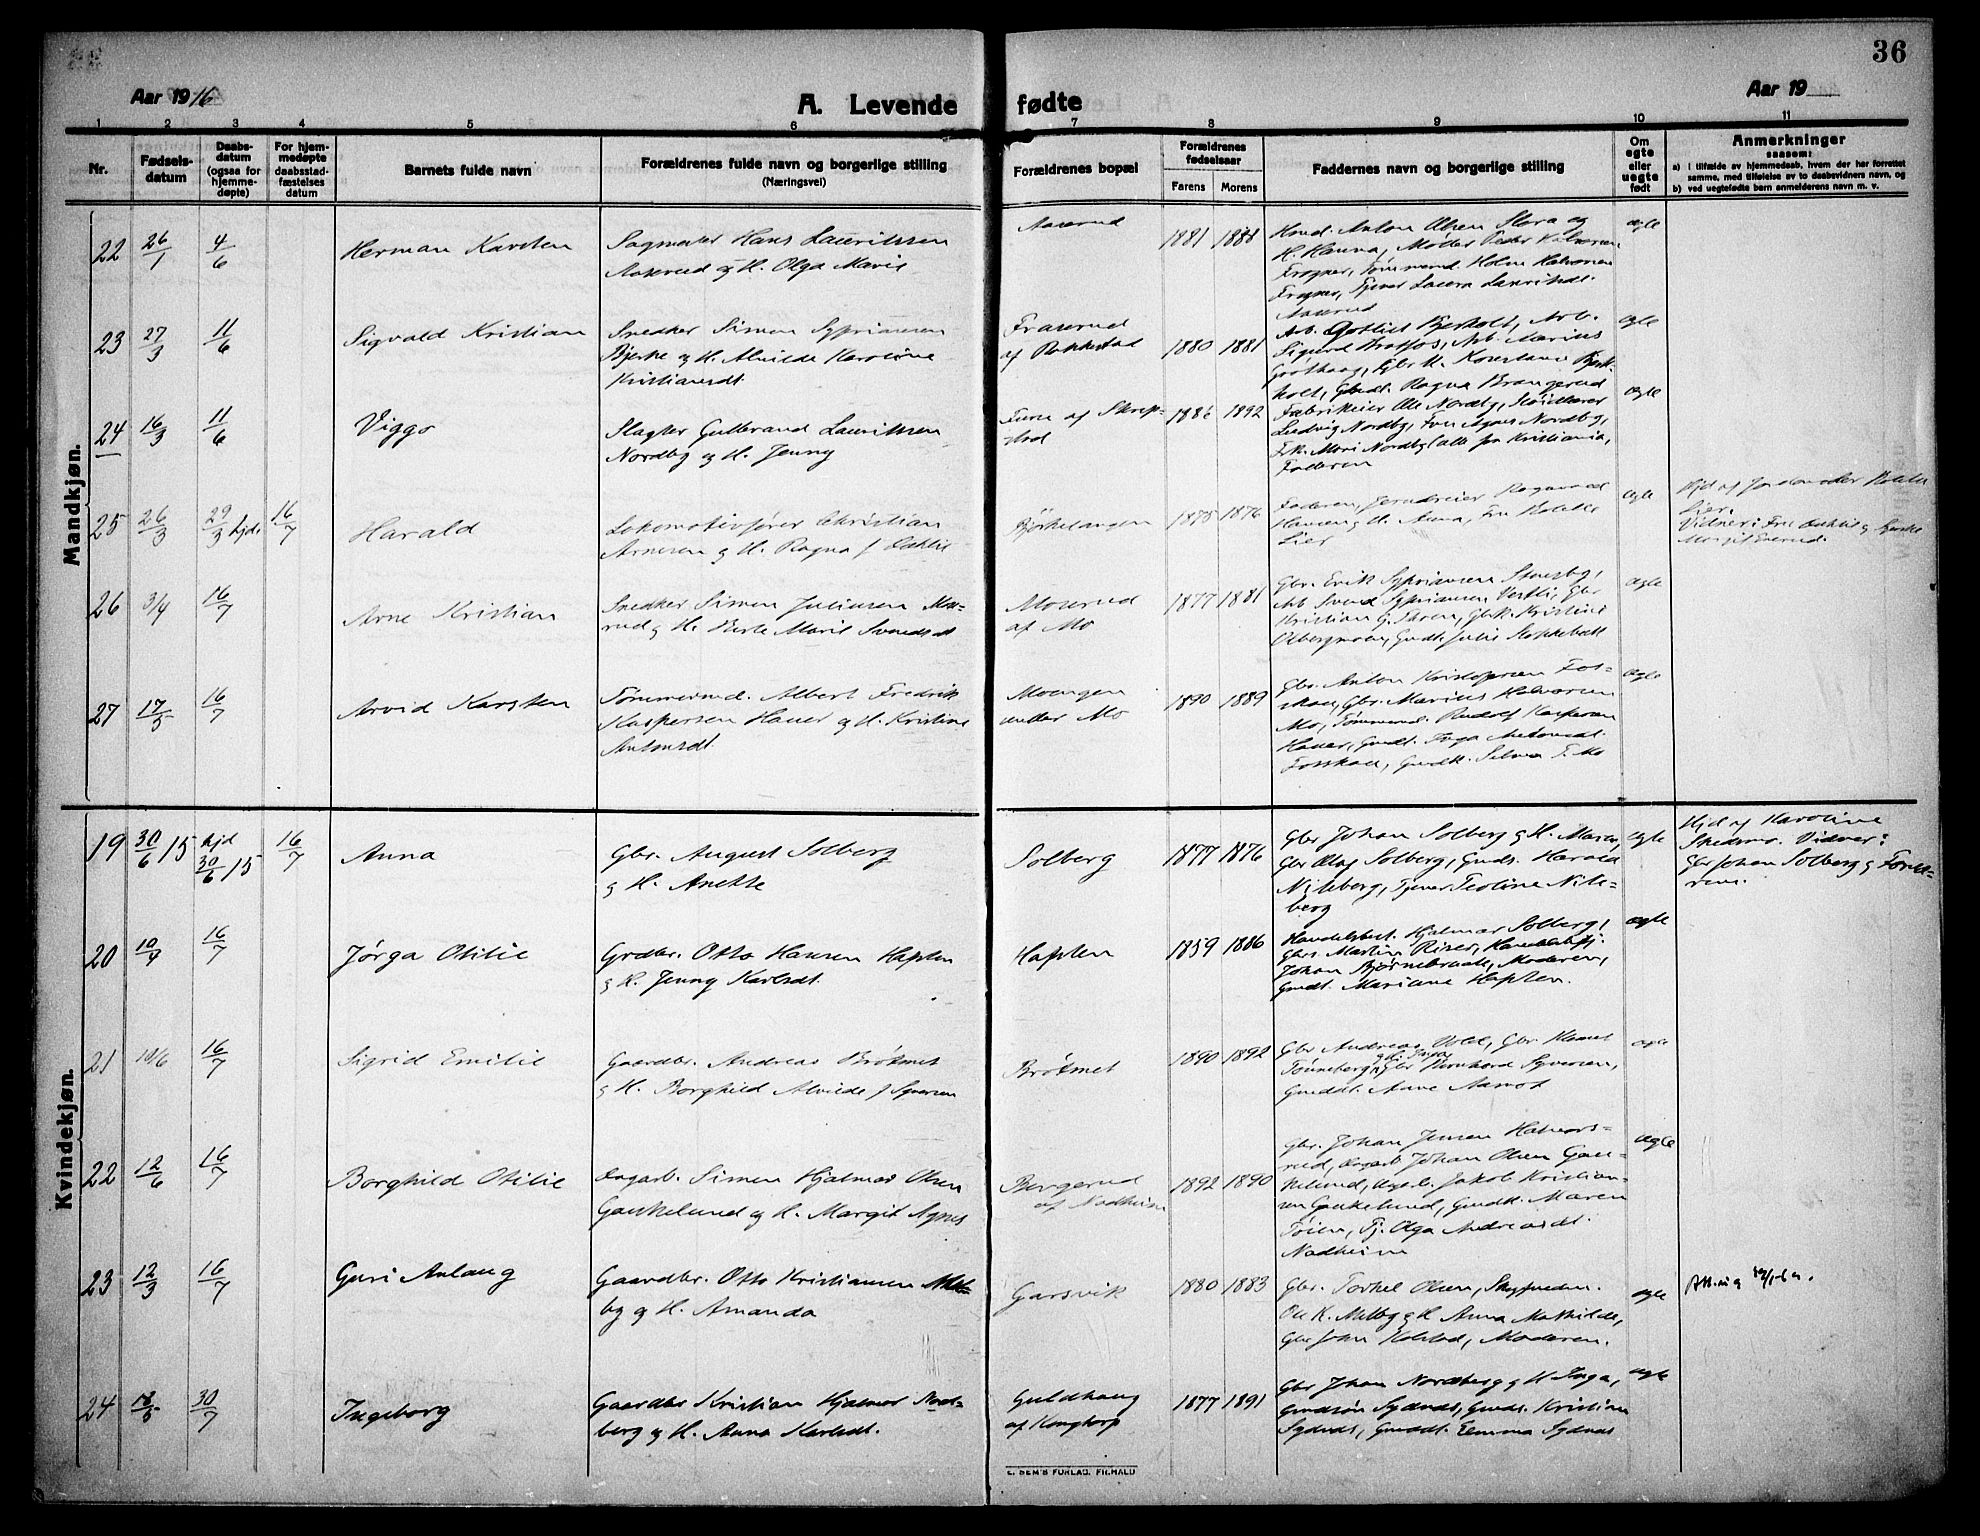 36
Aar 1916
A. Levende fødte
Aar 19
1 2 3 4 5 6 7 8 9 10 11
Nr.
Fødsels-
datum
Daabs-
datum
(ogsaa for
hjemme-
døpte)
For hjem-
medøpte
daabsstad-
fæstelses
datum
Barnets fulde navn
Forældrenes fulde navn og borgerlige stilling
(Næringsvei)
Forældrenes bopæl
Forældrenes
fødselsaar
Farens Morens
Faddernes navn og borgerlige stilling
Om
egte
eller
uegte
født
Anmerkninger
saasom:
a) i tilfælde av hjemmedaab, hvem der har forrettet
samme, med tilføielse av to daabsvidners navn, og
b) ved uegtefødte barn anmelderens navn m. v.
Mandkjøn.
22 26/1 4/6 Herman Karsten
Sagmester Hans Lauritssen
Aaserud og H. Olga Marie
Aaserud
1881 1888
Hand. Anton Olsen Slora og
H. Hanna, Møller Peder Halvorsen
Frogner, Tømmermd. Holm Halvorsen
Frogner, Tjener Laura Lauritsdt.
Aaserud
ægte
23 27/3 11/6 Sigvald Kristian
Snedker Simon Sypriansen
Bjerke og H. Alvilde Karoline
Kristiansdt.
Fraserud
af Rakkestad
1880 1881
Arb. Gotlieb Bjerholt, Arb.
Sigurd Brotfos, Arb. Marius
Grøthaug, Gbr. K. Konstanse Bjerk-
holt, Gmdt. Ragna Brangerud
ægte
24 16/3 11/6 Viggo
Slagter Gulbrand Lauritssen
Nordby og H. Jenny
Furu af Skrep-
stad
1886 1892
Fabrikeier Ole Nordby, Skibfører
Ludvig Nordby, Fru Agnes Nordby,
Frk. Mari Nordby (alle fra Kristiania,
Faderen
ægte
25 26/3 29/3 hjd. 16/7 Harald
Lokomotivfører Christian
Arnesen og H. Ragna f. Dahlie
Bjørkelangen
1875 1876
Faderen, Jerndreier Ragnvald
Hansen og H. Anna, Fru Holable
Lier
ægte
Hjd af Jordemoder Holable
Lier.
Vidner: Fru Dahlie og Frøken
Margit Enerud.
26 3/4 16/7 Arne Kristian
Snedker Simen Juliussen Mose-
rud og H. Berte Marie Svendsdt
Moserud
af Mo
1877 1881
Gbr. Erik Sypriansen Stuesby,
Arb Svend Sypriansen Vestli, Gbr
Kristian G. Toren, Gbrk. Kristine
Olbergmoen, Gmdt. Julie Stokkebæk
ægte
27 17/5 16/7 Arvid Karsten
Tømmermd. Albert Fredrik
Kaspersen Hauer og H. Kristine
Antonsdt.
Moengen
under Mo
1890 1889
Gbr. Anton Kristofersen Fos-
skau, Gbr. Marius Halvorsen
Mo, Tømmermd. Rudolf Kaspersen
Hauer, Gmdt. Inga Antonsdt.
Fosskau, Gmdt. Selma T. Mo
ægte
Kvindekjøn.
19 30/6 15 hjd 30/6 15 16/7 Anna
Gbr. August Solberg
og H. Anette
Solberg
1877 1876
Gbr Johan Solberg og H. Maren,
Gbr Olaf Solberg, Gmds. Harald
Nileberg, Tjener Teoline Nile-
berg
ægte
Hjd af Karoline
Snedmo. Vidner:
Gbr Johan Solberg og Foræld-
rene.
20 10/4 16/7 Jørga Otilie
Grdbr. Otto Hansen Haplen
og H. Jenny Karlsdt.
Haplen
1859 1886
Handelsbest. Hjalmar Solberg,
Gbrs Martin Riser, Handelsbetj.
Johan Bjørnebraate, Moderen,
Gmdt. Mariane Haplen.
ægte
21 10/6 16/7 Sigrid Emilie
Gaardbr. Andreas Brøtmet
og H. Borghild Alvilde f Syversen
Brøtmet
1890 1892
Gbr Andreas Vold, Gbr Hans
og H. Inga
Tønneberg, Gbr Bernhard Syversen,
Gmdt. Anne Aamot
ægte
22 12/6 16/7 Borghild Otilie
Dagarb. Simen Hjalmar Olsen
Gaukelund og H. Margit Agnes
Bergerud
af Nadheim
1892 1890
Gbr. Johan Jensen Halvors-
rud, Dagarb. Johan Olsen Gau-
kelund, Dagarb. Jakob Kristian-
sen Gaukelund, Gmdt. Maren
Tøien, Tj. Olga Andreasdt.
Nadheim
ægte
23 12/3 16/7 Guri Anlaug
Gaardbr. Otto Kristiansen Mel-
by og H. Amanda
Garsvik
1880 1883
Gbr. Torkel Olsen, Skysfreden.
Ole K. Melby og H Anna Mathilde,
Gbr John Holstad, Moderen.
ægte
24 18/5 30/7 Ingeborg
Gaardbr Kristian Hjalmar Nord-
berg og H. Anna Karlsdt.
Guldhaug
af Kongtorp
1877 1891
Gbr Johan Nordberg og H Inga,
Gmdsøn Sydnes, Gmds. Kristian
Sydnes, Gmdt. Emma Sydnes
ægte
E. SEM'S FORLAG, FR.HALD